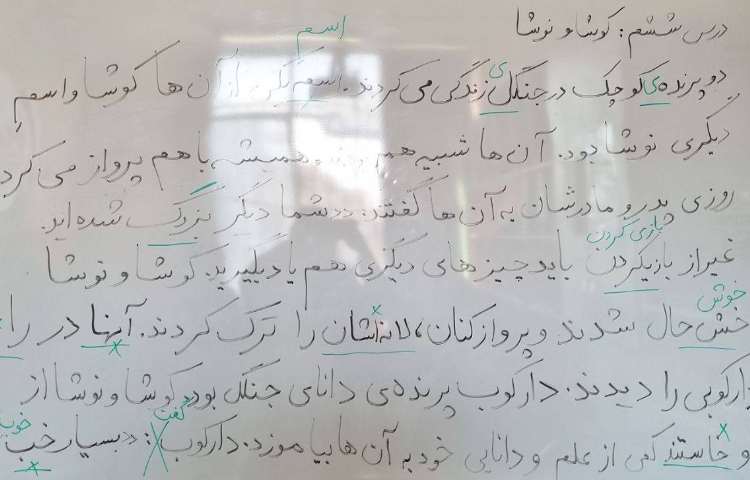 درس ششم: کوشا و نوشا
اسم
دو پرنده‌ی کوچک در جنگل ی زندگی می کردند. اسم یکی از آن ها کوشا و اسم
دیگری نوشا بود. آن ها شبیه هم بودند و همیشه با هم پرواز می کرد
روزی پدر و مادرشان به آن ها گفتند: «شما دیگر بزرگ شده اید.
بازی کردن
غیر از بازیکردن باید چیز های دیگری هم یاد بگیرید. کوشا و نوشا
خوش
خش حال شدند و پرواز کنان، لانه اشان را ترک کردند. آنها در را
دارکوبی را دیدند. دارکوب پرنده‌ی دانای جنگل بود. کوشا و نوشا از
گفت خوب
و خاستند کمی از علم و دانایی خود به آن ها بیاموزد. دارکوب: «بسیار خب